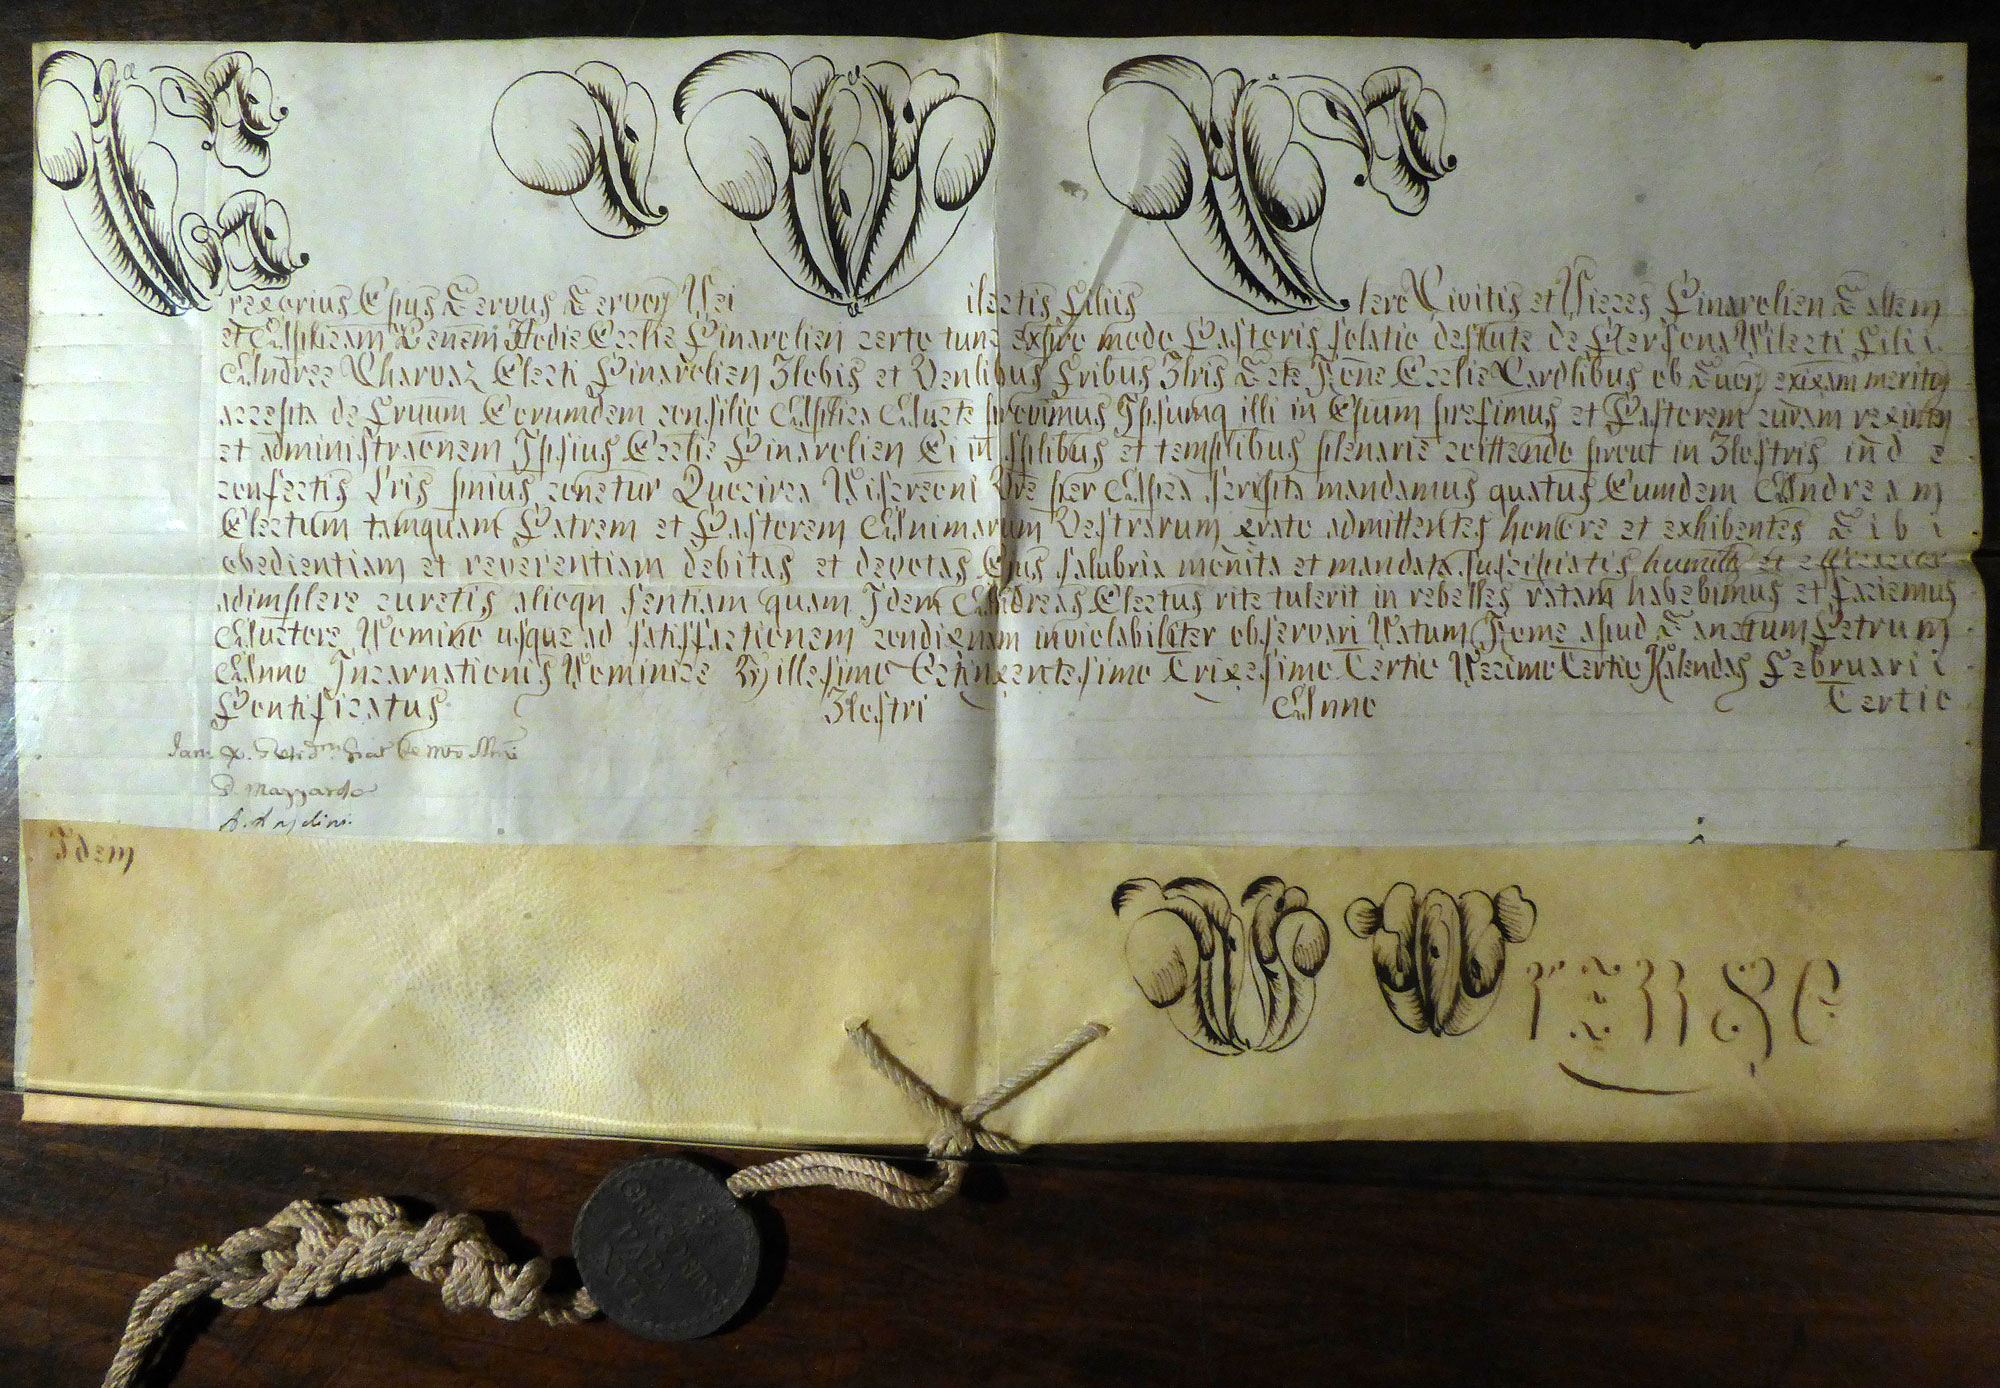 Gregorius Epus Servus Servor Dei Dilectis Filiis Clero Civitis et Dieces Pinarolien Saltem
et Aplicam Benem Hodie Ecclie Pinarolien certo tunc expso modo Pastoris solatio destitute de Persona Dilecti Filii
Andree Charvaz Electi Pinarolien Nobis et Venlibus Fribus Nris Ste Rone Ecclie Cardlibus ob Suor exigam meritor
accepta de Fruum Eorumdem consilio Aplica Aucte providimus Ipsumq illi in Epum prefimus et Pastorem curam regimen
et administraonem Ipsius Ecclie Pinarolien Ei in splibus et templibus plenarie comittendo prout in Nostris inde
confectis Lris plnius contetur Quocirca Discreoni Vre per Aplica scripta mandamus quatus Eumdem Andream
Electum tamquam Patrem et Pastorem Animarum Vestrarum grato admittentes honore et exhibentes Sibi
obedientiam et reverentiam debitas et devotas Ejus salubria monita et mandata suscipiatis humilr et efficacier
adimplere curetis alioqn sentiam quam Idem Andreas Electus rite tulerit in rebelles ratam habebimus et faciemus
Auctore Domino usque ad satisfactionem condignam inviolabiliter observari Datum Rome apud Sanctum Petrum
Anno Incarnationis Dominice Millesimo Octingentesimo Trigesimo Tertio Decimo Tertio Kalendas Februarii
Pontificatus Nostri Anno Tertio
D. Mazzarde
A. Angelini
Idem
GREGORIVS
PAPA
XVI